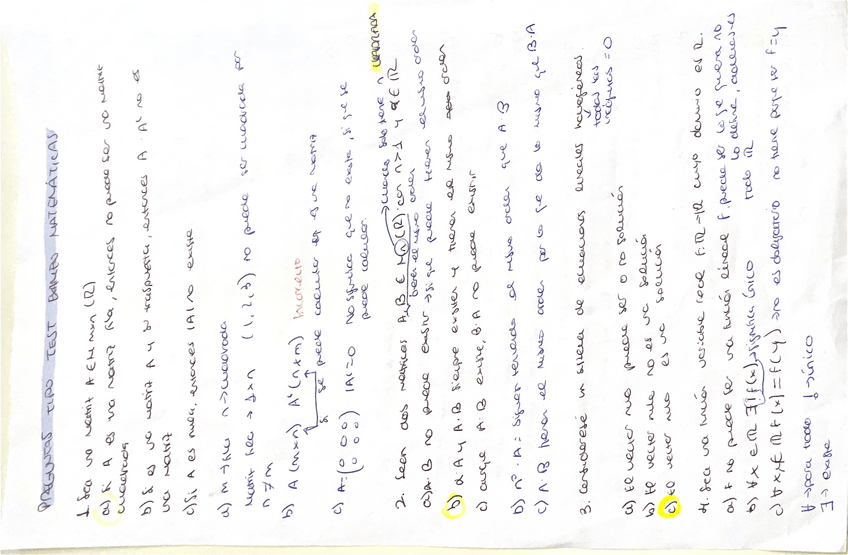 PREGUNTAS TIPO TEST BANCO MATEMÁTICAS
1. Sea una matriz A ∈ M m×n (ℝ)
a) Si A es una matriz fila, entonces no puede ser una matriz
cuadrada
b) Si es una matriz A y su traspuesta, entonces A · Aᵗ no es
una matriz
c) Si A es nula, entonces |A| no existe
a) m → fila n → cuadrada
matriz fila → 1×n (1,2,3) no puede ser cuadrada por
n≠m
b) A (m×n) Aᵗ (n×m) Incorrecto
si se puede calcular es una matriz
c) A = (0 0 0 / 0 0 0) |A| = 0 No significa que no exista, si que se
puede calcular
2. Sean dos matrices A y B ∈ Mn (ℝ) con n>1 y α ∈ ℝ
cuadrada solo tiene n CUADRADA
tienen el mismo orden
a) A·B no puede existir → si que puede tienen el mismo orden
b) α·A y A·B siempre existen y tienen el mismo orden
c) aunque A·B existe, B·A no puede existir
b) nº·A = siguen teniendo el mismo orden que A·B
c) A·B tienen el mismo orden por lo que da lo mismo que B·A
3. Considérese un sistema de ecuaciones lineales homogéneas.
todas las
incógnitas = 0
a) El vector nulo puede ser o no solución
b) El vector nulo no es una solución
c) El vector nulo es una solución
4. Sea una función variable real f: ℝ→ℝ cuyo dominio es ℝ.
a) f no puede ser una función lineal f. puede ser lo que quiera no
lo define, además es
todo ℝ
b) ∀x ∈ ℝ ∃! f(x) → significa único
c) ∀x,y ∈ ℝ f(x) = f(y) → no es obligatorio no tiene porque ser f=y
∀ → para todo ! → único
∃ → existe